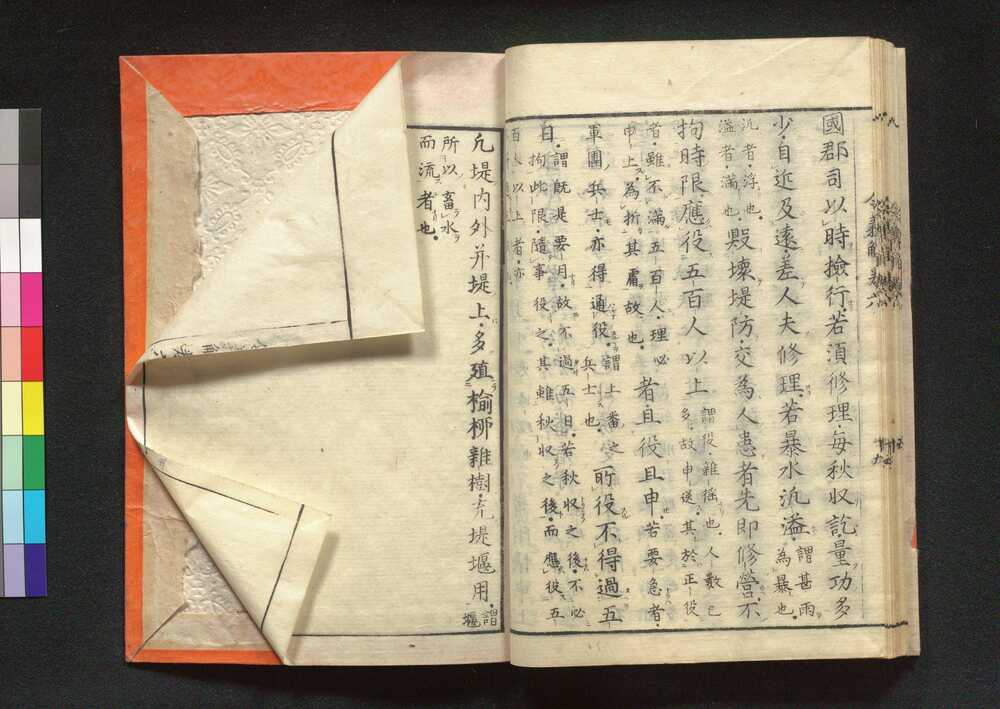 國郡司以時撿行若須修理毎秋収訖量功多
少自近及遠差人夫修理若暴水汎溢謂甚雨為暴也
汎者浮也溢者滿也毀壞堤防交為人患者先即修營不
拘時限應役五百人以上謂役雜徭也人數已多故申送其於正役
者雖不滿五百人理必申上為折其庸故也者且役且申若要急者
軍團兵士亦得通役謂上番之兵士也所役不得過五
日謂既是要月故不過五日若秋収之後不必拘此限隨事役之其雖秋収之後而應役五
百人以上者亦
凡堤内外并堤上多殖榆柳雜樹充堤堰用謂堰
所以畜水
而流者也